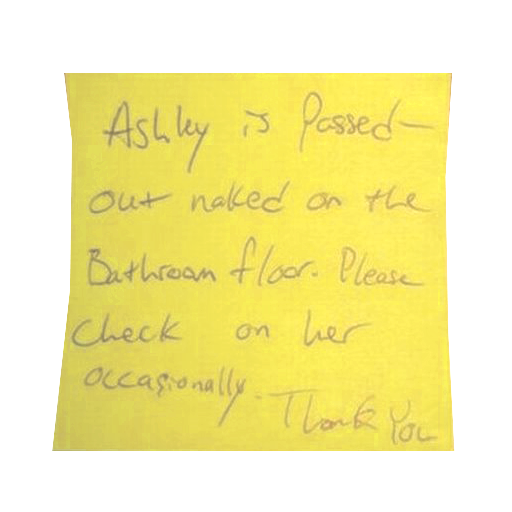 Ashley is Passed-
out naked on the
Bathroom floor. Please
Check on her
occasionally.
Thank You